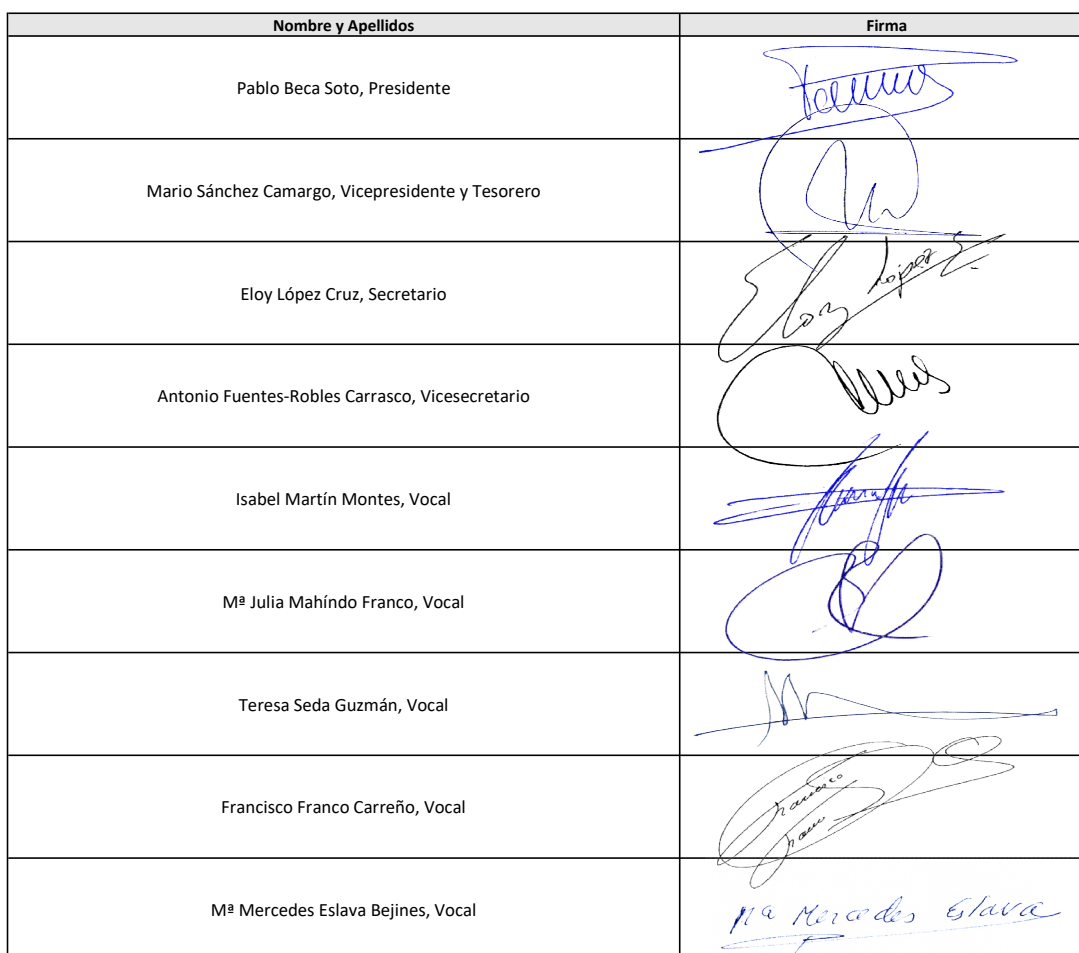 Nombre y Apellidos Firma
Pablo Beca Soto, Presidente
Mario Sánchez Camargo, Vicepresidente y Tesorero
Eloy López Cruz, Secretario Eloy López
Antonio Fuentes-Robles Carrasco, Vicesecretario
Isabel Martín Montes, Vocal
Mª Julia Mahíndo Franco, Vocal
Teresa Seda Guzmán, Vocal
Francisco Franco Carreño, Vocal Francisco
Franco
Mª Mercedes Eslava Bejines, Vocal Mª Mercedes Eslava